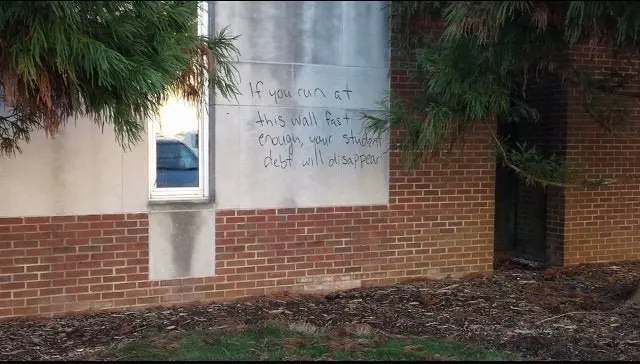 If you run at
this wall fast
enough, your student
debt will disappear